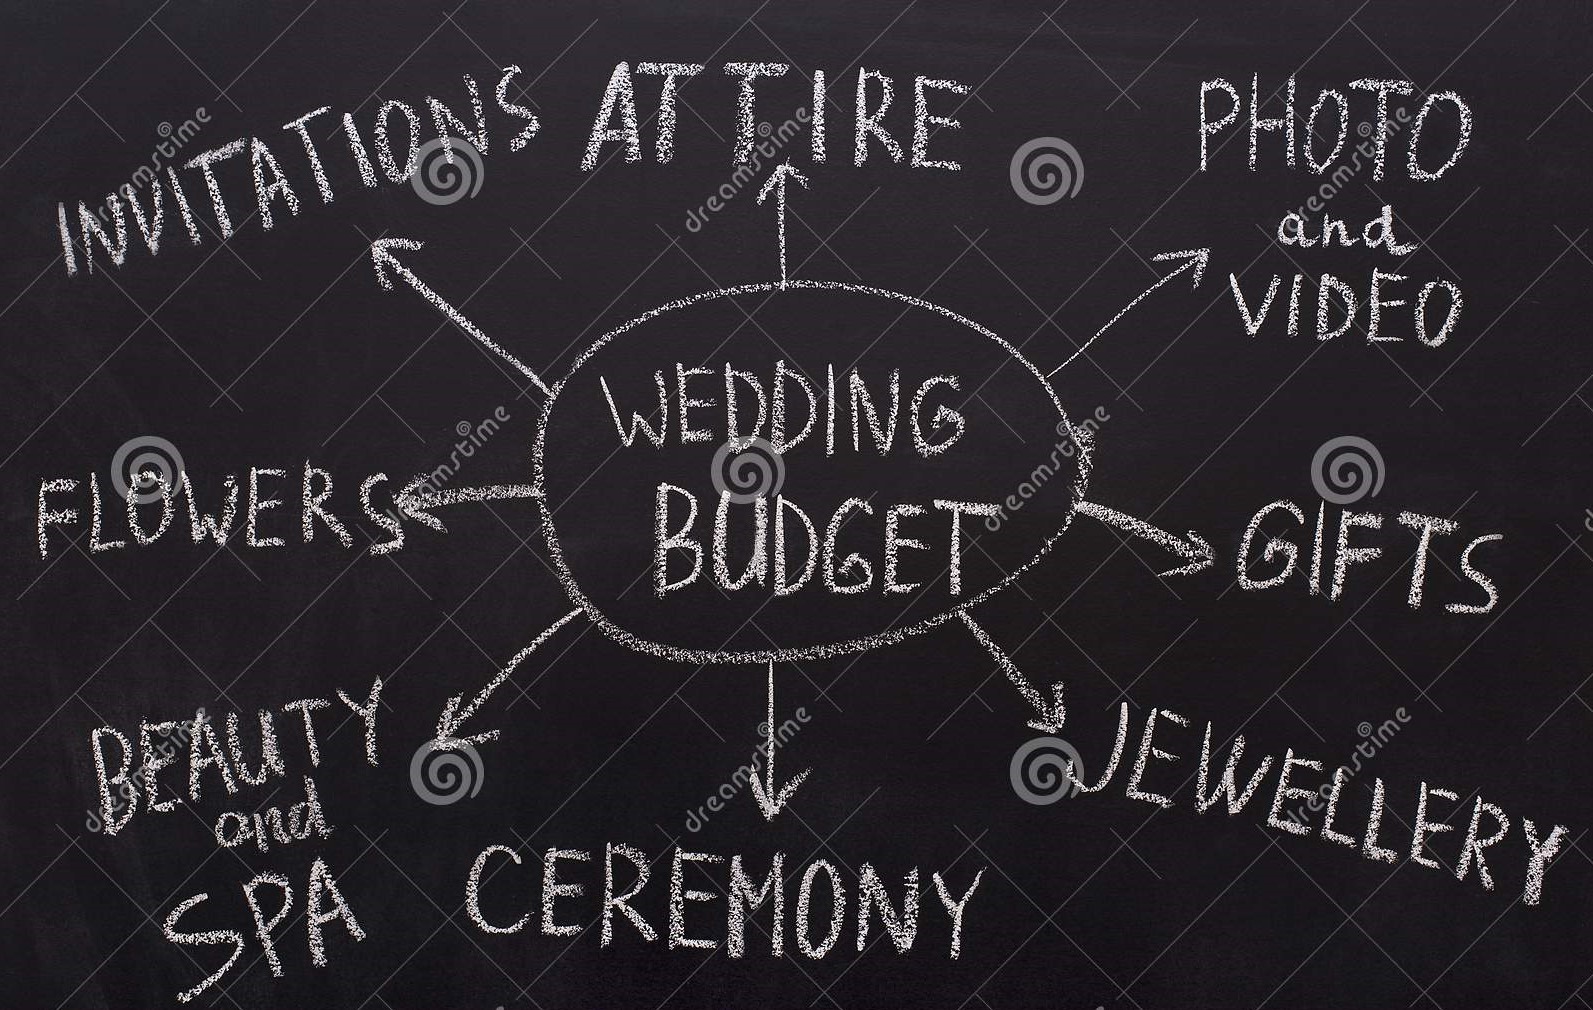 INVITATIONS
ATTIRE
PHOTO
and
VIDEO
WEDDING
BUDGET
FLOWERS
GIFTS
BEAUTY
and
SPA
CEREMONY
JEWELLERY
dreamstime
dreamstime
dreamstime
dreamstime
dreamstime
dreamstime
dreamstime
dreamstime